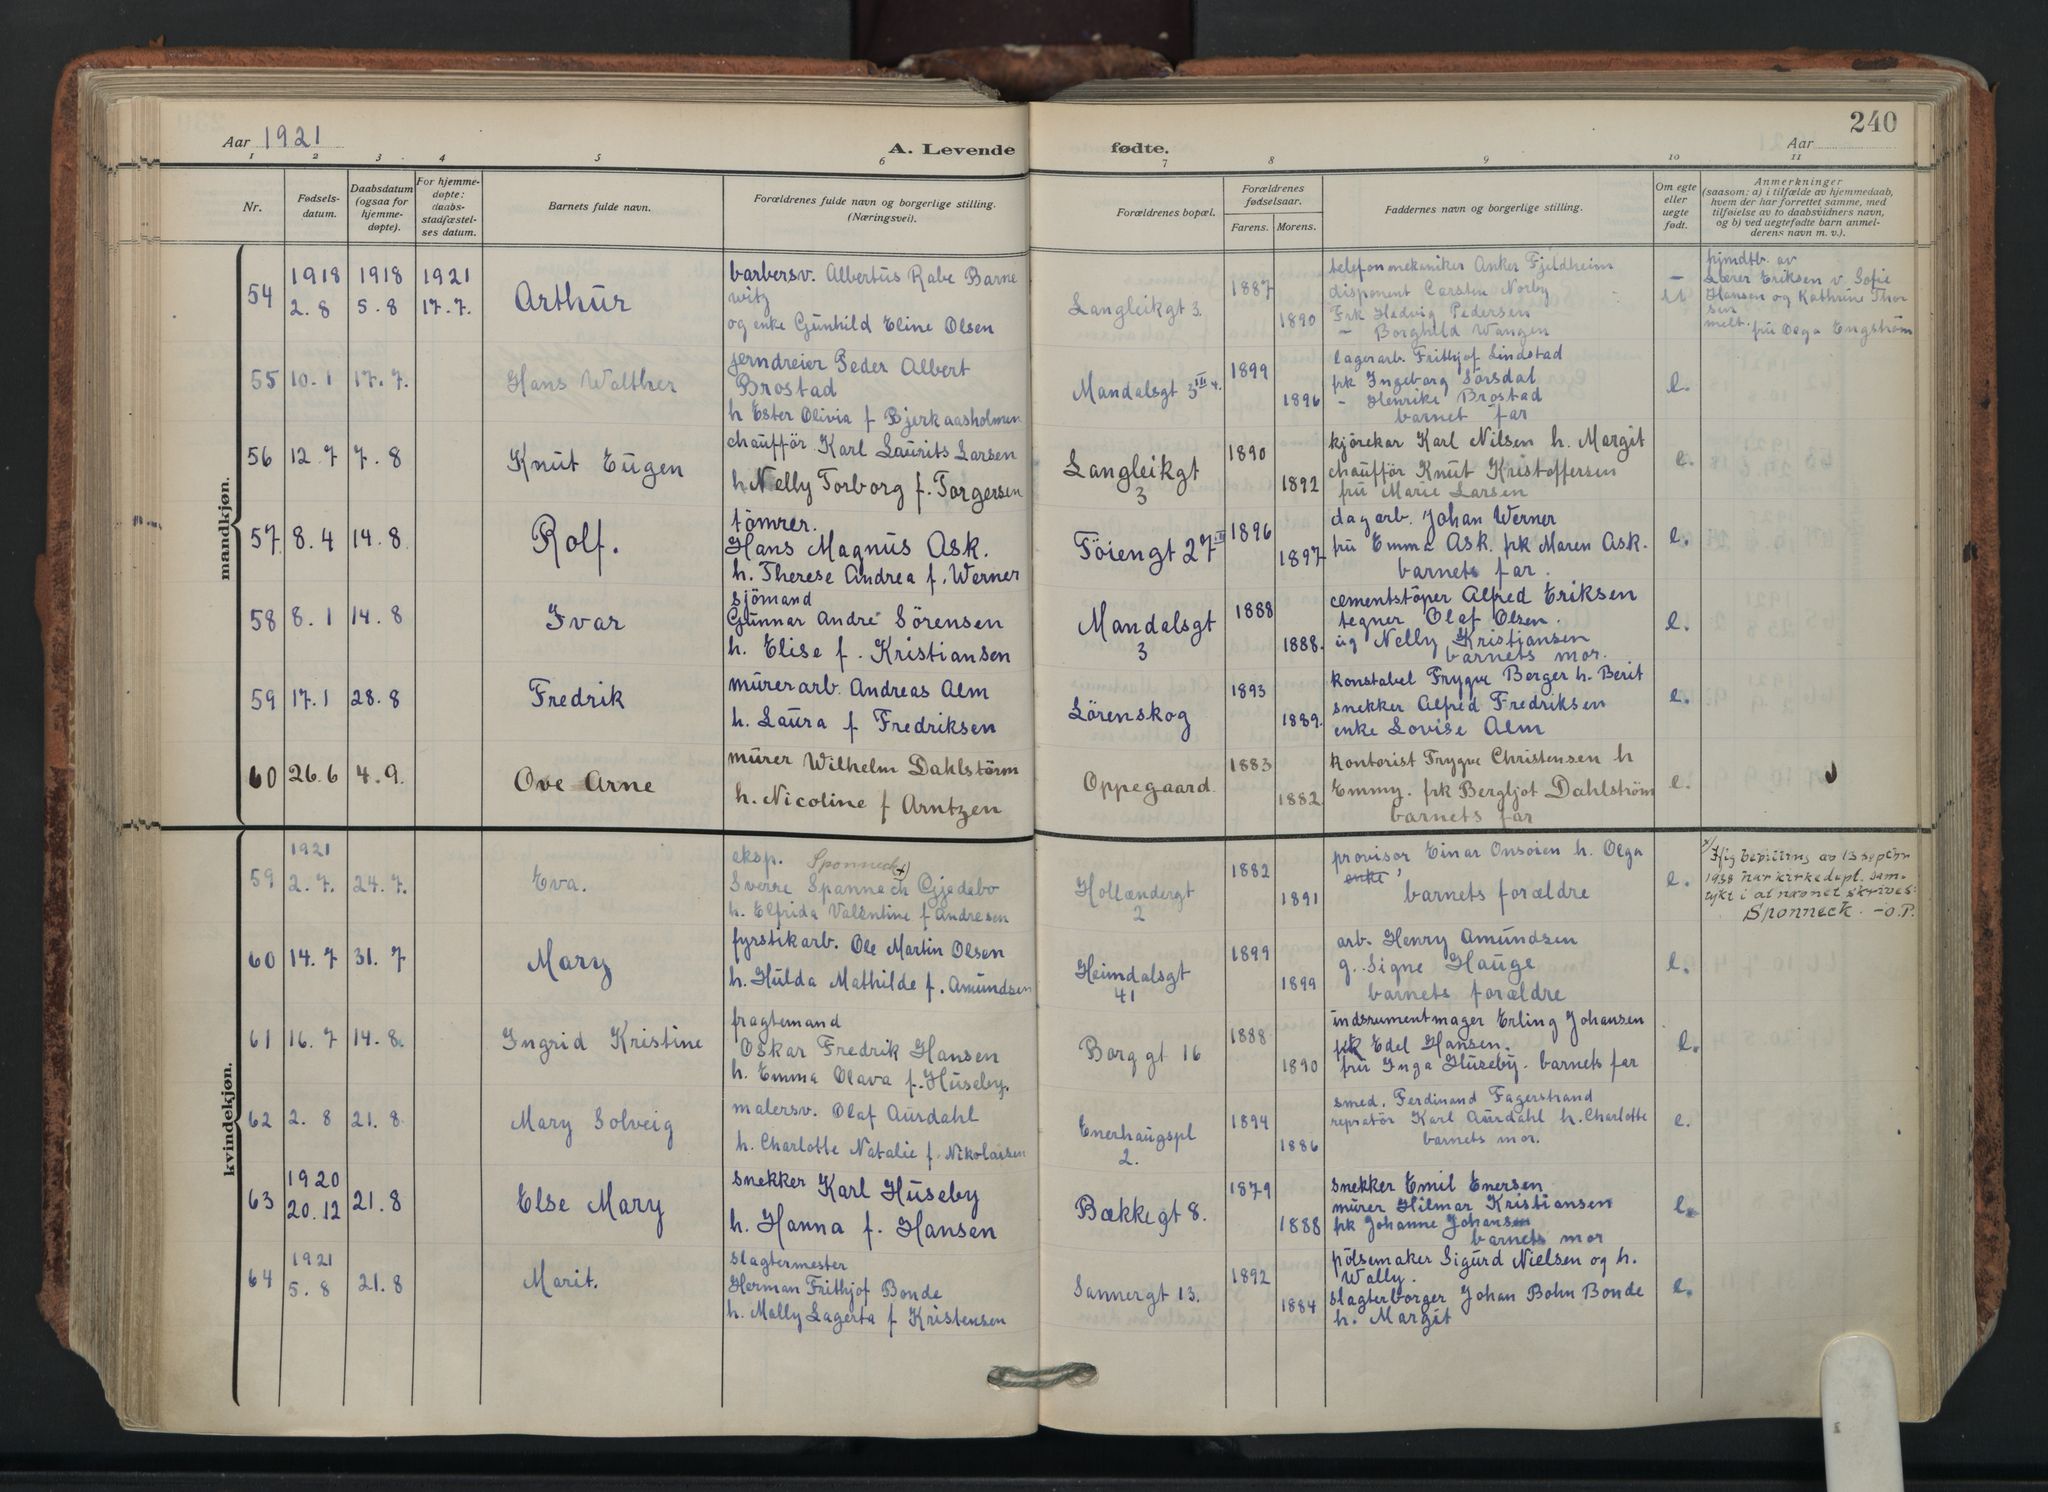 Aar 1921
A. Levende
fødte.
240
Aar
1 2 3 4 5 6 7 8 9 10 11
Nr.
Fødsels-
datum.
Daabsdatum
(ogsaa for
hjemme-
døpte).
For hjemme-
døpte:
daabs-
stadfæstel-
ses datum.
Barnets fulde navn.
Forældrenes fulde navn og borgerlige stilling.
(Næringsvei).
Forældrenes bopæl.
Forældrenes
fødselsaar.
Farens. Morens.
Faddernes navn og borgerlige stilling.
Om egte
eller
uegte
født.
Anmerkninger
(saasom: a) i tilfælde av hjemmedaab,
hvem der har forrettet samme, med
tilføielse av to daabsvidners navn,
og b) ved uegtefødte barn anmel-
derens navn m. v.).
mandkjøn.
54
1918
2.8
1918
5.8
1921
17.7.
Arthur
barbersv. Albertus Rabe Barne
witz
og enke Gunhild Eline Olsen
Langleikgt 3.
1887
1890
telefonmekaniker Anker Fjeldheim
disponent Carsten Norby
Frk Hedvig Pedersen
– Borghild Wangen
hjmdtb. av
Lærer Eriksen v. Sofie
Hansen og Kathrine Thor
sen
melt. fru Olga Engström
55
10.1
17.7.
Hans Walther
jerndreier Peder Albert
Brostad
h Ester Olivia f Bjerkaasholmen
Mandalsgt 3 III
1899
1896
lagerarb. Frithjof Lindstad
frk Ingeborg Sörsdal
– Henrike Brostad
barnet far
e.
56
12.7
7.8
Knut Eugen
chaufför Karl Laurits Larsen
h Nelly Torborg f. Torgersen
Langleikgt
3
1890
1892
kjörekar Karl Nilsen h. Margit
chaufför Knut Kristoffersen
fru Marie Larsen
e.
57
8.4
14.8
Rolf.
tömrer.
Hans Magnus Ask.
h. Therese Andrea f. Werner
Töiengt 27 II
1896
1897
dagarb. Johan Werner
fru Emma Ask. frk Maren Ask.
barnets far.
e.
58
8.1
14.8
Ivar
sjömand
Gunnar André Sörensen
h. Elise f. Kristiansen
Mandalsgt
3
1888
1888.
cementstöper Alfred Eriksen
tegner Olaf Olsen.
ug Nelly Kristiansen
barnets mor.
e.
59
17.1
28.8
Fredrik
murerarb. Andreas Alm
h. Laura f Fredriksen
Lörenskog
1893
1889.
konstabel Trygve Berger h. Berit
snekker Alfred Fredriksen
enke Lovise Alm
e.
60
26.6
4.9.
Ove Arne
murer Wilhelm Dahlström
h. Nicoline f Arntzen
Oppegaard
1883
1882
kontorist Trygve Christensen h
Emmy. frk Bergljot Dahlström
barnets far
e.
kvindekjøn.
59
1921
2.7.
24.7.
Eva.
eksp. Sponneck x)
Sverre Spannech Gjedebo
h. Elfrida Valentine f Andresen
Hollændergt
2
1882
1891
provisor Einar Onsoien h. Olga
enke
barnets forældre
e.
x/ Iflg bevilling av 13 septbr
1938 har kirkedept. sam-
tykt i at navnet skrives:
Sponneck. –O.P.
60
14.7
31.7
Mary
fyrstikarb. Ole Martin Olsen
h. Hulda Mathilde f. Amundsen
Heimdalsgt
41
1899
1899
arb. Henry Amundsen
g. Signe Hauge
barnets forældre
e.
61
16.7
14.8.
Ingrid Kristine
fragtemand
Oskar Fredrik Hansen
h. Emma Olava f. Huseby.
Borggt 16
1888
1890
indsrumentmager Erling Johansen
frk Edel Hansen.
fru Inga Huseby. barnets far
e.
62
2.8
21.8
Mary Solveig
malersv. Olaf Aurdahl
h. Charlotte Natalie f. Nikolaisen
Enerhaugspl
2.
1894
1886
smed. Ferdinand Fagerstrand
repratør Karl Aurdahl h. Charlotte
barnets mor.
e.
63
1920
20.12
21.8
Else Mary
snekker Karl Huseby
h. Hanna f. Hansen
Bækkegt 8.
1879
1888
snekker Emil Enersen
murer Hilmar Kristiansen
frk Johanne Johansen
barnets mor
e.
64
1921
5.8
21.8
Marit.
slagtermester
Herman Frithjof Bonde
h. Molly Lagerta f Kristensen
Sannergt 13.
1892
1884
pölsemaker Sigurd Nielsen og h.
Wally.
slagterborger Johan Bohn Bonde
h. Margit
e.